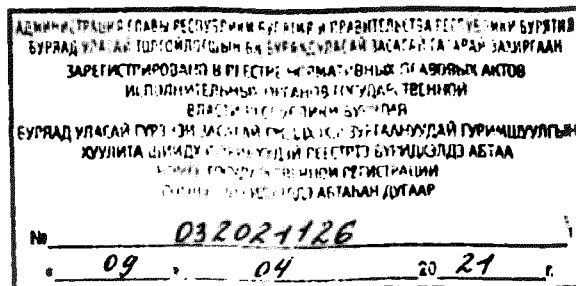 АДМИНИСТРАЦИЯ ГЛАВЫ РЕСПУБЛИКИ БУРЯТИЯ И ПРАВИТЕЛЬСТВА РЕСПУБЛИКИ БУРЯТИЯ
БУРЯАД УЛАСАЙ ТОЛГОЙЛОГШЫН БА БУРЯАД УЛАСАЙ ЗАСАГАЙ ГАЗАРАЙ ЗАХИРГААН
ЗАРЕГИСТРИРОВАНО В РЕЕСТРЕ НОРМАТИВНЫХ ПРАВОВЫХ АКТОВ
ИСПОЛНИТЕЛЬНЫХ ОРГАНОВ ГОСУДАРСТВЕННОЙ
ВЛАСТИ РЕСПУБЛИКИ БУРЯТИЯ
БУРЯАД УЛАСАЙ ЗАСАГАЙ ГУРИМШУУЛГЫН
ХУУЛИТА РЕЕСТРТЭ БҮРИДХЭЛДЭ АБТАА
НОМЕР ГОСУДАРСТВЕННОЙ РЕГИСТРАЦИИ
АБТАҺАН ДУГААР
№ 032021126
« 09 » 04 20 21 г.